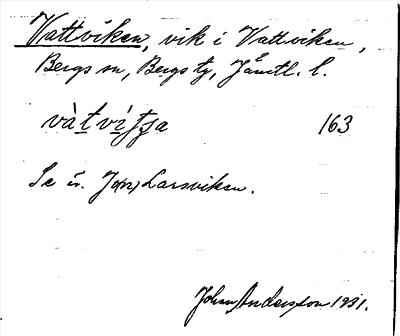 Vattviken, vik i Vattviken,
Bergs sn, Bergs tg, Jämtl. l.
vàtvítja 163
Se äv. Jo(n)Larsviken.
Johan Andersson 1931.